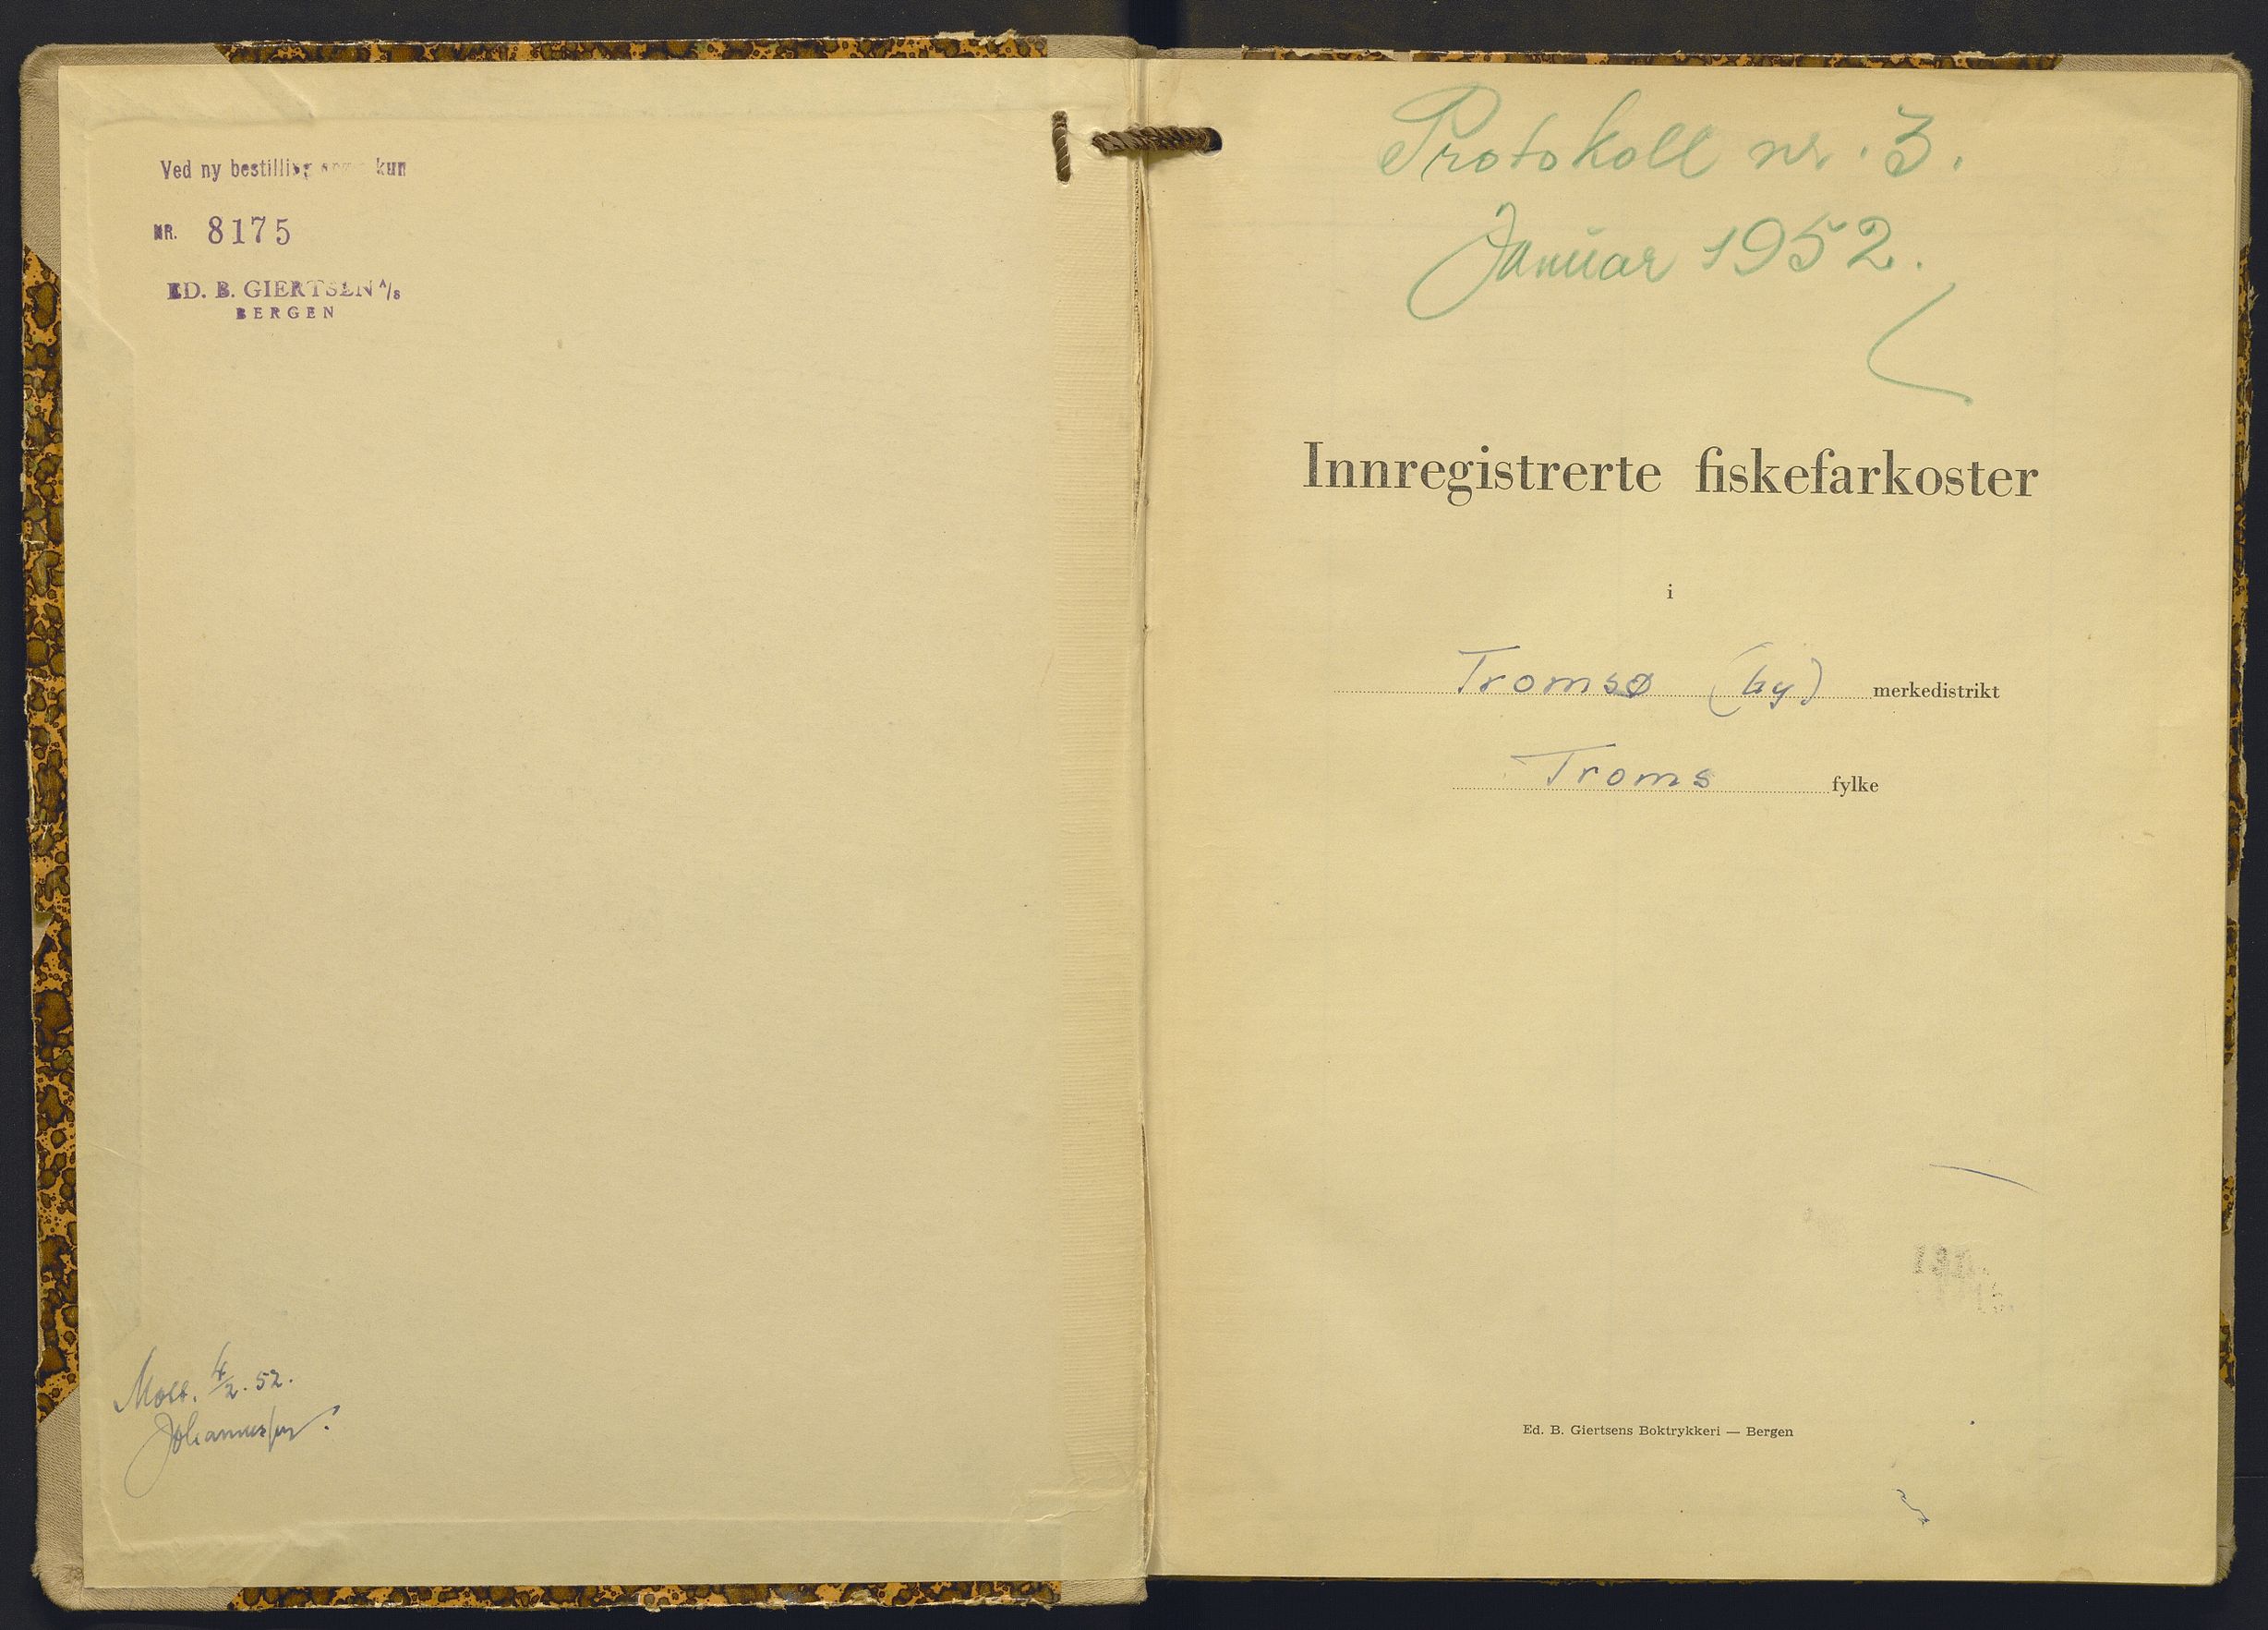 Ved ny bestilling kun
NR. 8175
ED. B. GIERTSEN A/S
BERGEN
Mott. 4/2. 52.
Johannessen.
Protokoll nr. 3.
Januar 1952.
Innregistrerte fiskefarkoster
i
Tromsø (by) merkedistrikt
Troms fylke
Ed. B. Giertsens Boktrykkeri — Bergen